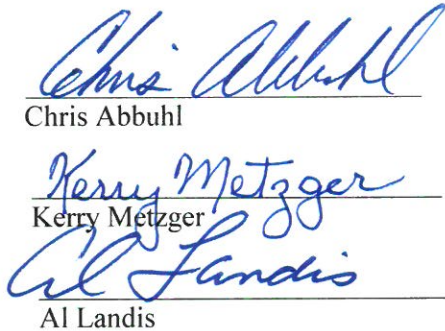 Chris Abbuhl
Chris Abbuhl
Kerry Metzger
Kerry Metzger
Al Landis
Al Landis